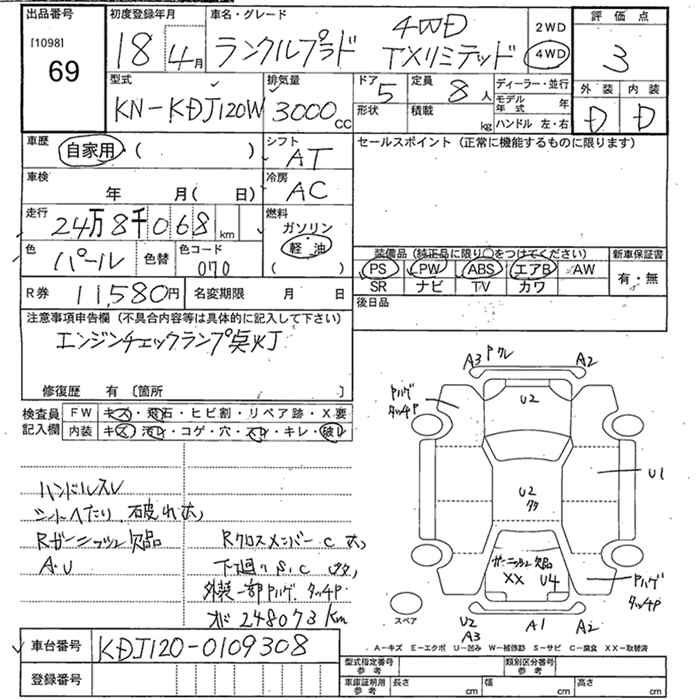 出品番号
[1098]
69
初度登録年月
18年4月
車名・グレード
ランクルプラド
4WD
TXリミテッド
2WD
4WD
評価点
3
外装 内装
D D
型式
KN-KDJ120W
排気量
3000cc
ドア
5
形状
定員
8人
積載
kg
ディーラー・並行
モデル年式 年
ハンドル 左・右
車歴
自家用・( )
シフト
AT
セールスポイント(正常に機能するものに限ります)
車検
年 月( 日)
冷房
AC
走行
24万8千068km
燃料
ガソリン
軽油
( )
色
パール
色替
色コード
070
装備品(純正品に限り○をつけてください)
新車保証書
PS PW ABS エアB AW
SR ナビ TV カワ
有・無
R券
11,580円
名変期限 月 日
後日品
注意事項申告欄(不具合内容等は具体的に記入して下さい)
エンジンチェックランプ点灯
修復歴 有〔箇所 〕
検査員記入欄
FW キズ・飛石・ヒビ割・リペア跡・X要
内装 キズ・汚レ・コゲ・穴・スレ・キレ・破レ
ハンドルスレ
シートヘたり、破れ大
Rガーニッシュ欠品
A・U
Rクロスメンバー C 大
下廻り S,C 大
外装一部Pハゲ、タッチP
オド 248073km
A3 Pクレ A2
Pハゲ
タッチP
U2
U1
U2
ガーニッシュ欠品
XX U4
Pハゲ
タッチP
スペア
U2
A3
A1
A2
A-キズ E-エクボ U-凹み W-補修跡 S-サビ C-腐食 XX-取替済
車台番号
KDJ120-0109308
登録番号
型式指定番号
参考
類別区分番号
参考
車庫証明用
参考
長さ cm
幅 cm
高さ cm